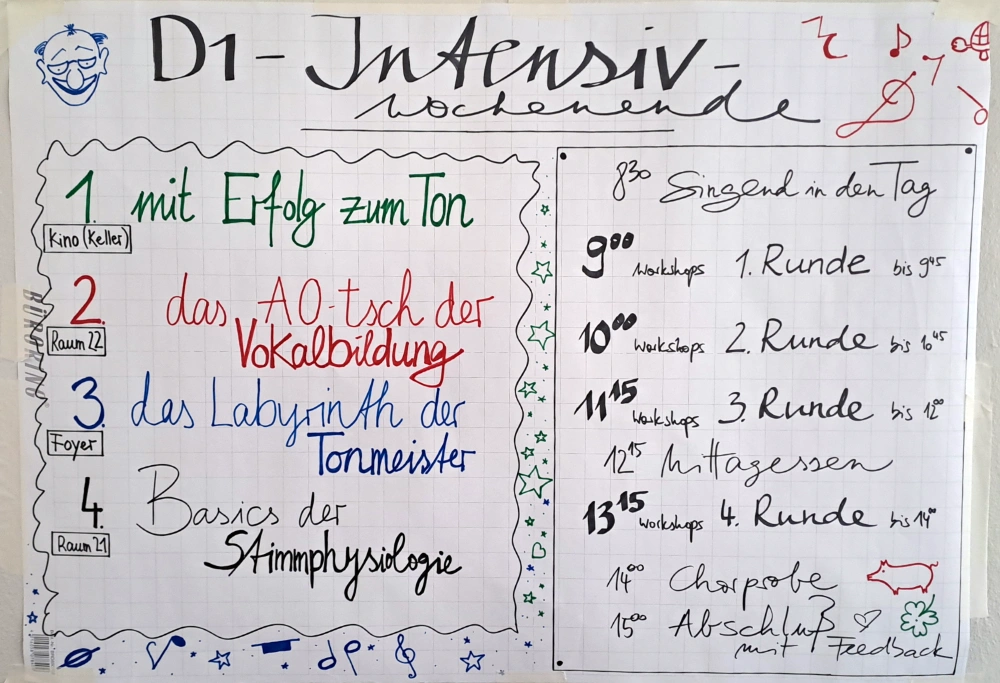 D1 - Intensiv-
wochenende
1. mit Erfolg zum Ton
Kino (Keller)
2. das AO-tsch der
Vokalbildung
Raum 22
3. das Labyrinth der
Tonmeister
Foyer
4. Basics der
Stimmphysiologie
Raum 21
8³⁰ Singend in den Tag
9⁰⁰ Workshops 1. Runde bis 9⁴⁵
10⁰⁰ Workshops 2. Runde bis 10⁴⁵
11¹⁵ Workshops 3. Runde bis 12⁰⁰
12¹⁵ Mittagessen
13¹⁵ Workshops 4. Runde bis 14⁰⁰
14⁰⁰ Chorprobe
15⁰⁰ Abschluß
mit Feedback